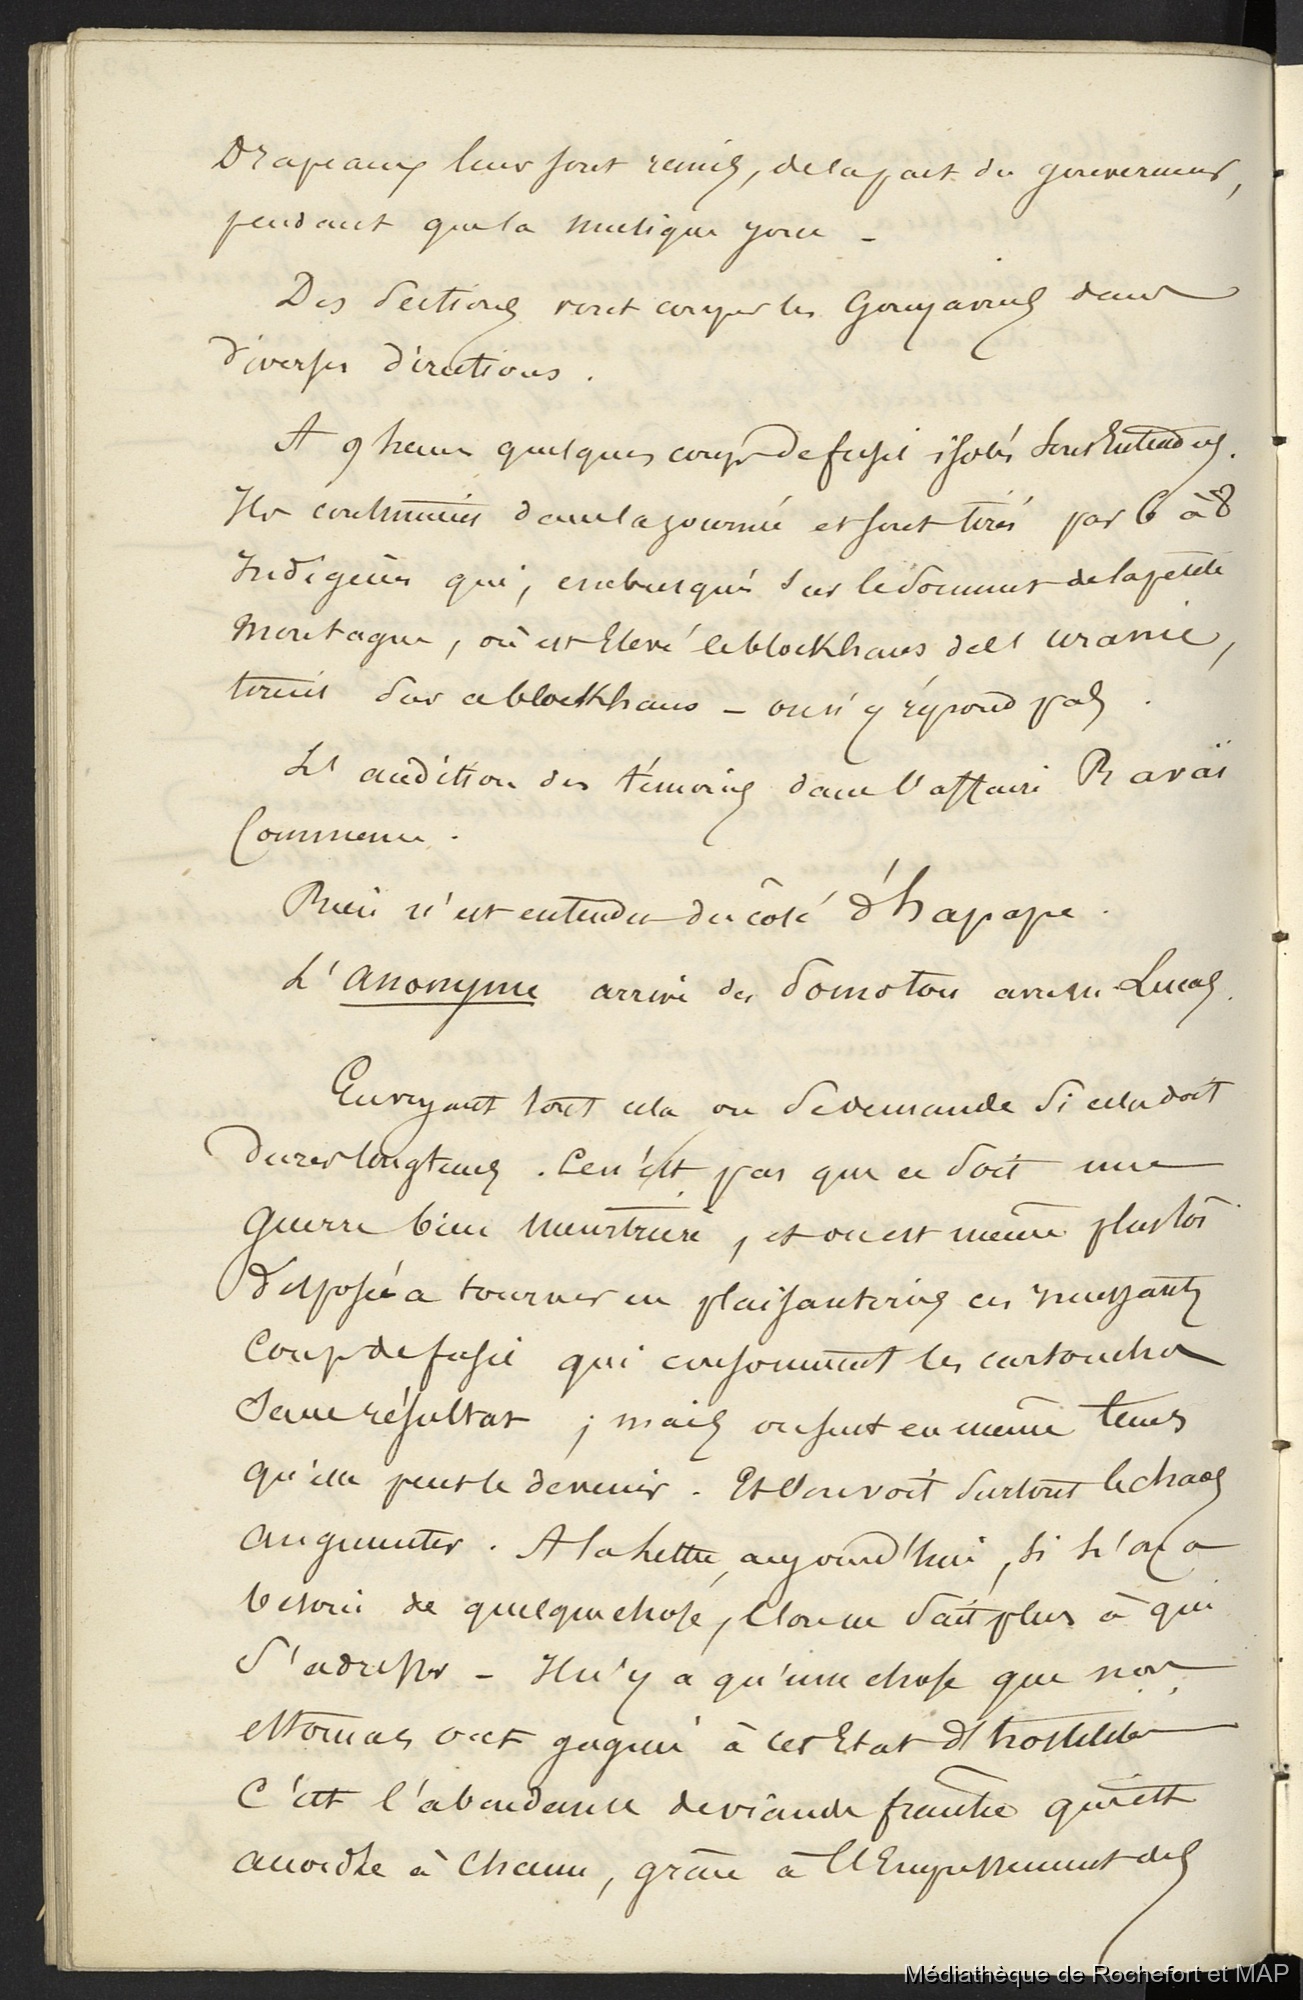 Drapeaux leur sont remis, de la part du gouverneur,
pendant que la musique joue -
Des sections vont couper les Gouyaviers dans
diverses directions.
A 9 heures quelques coups de fusil isolés sont Entendus.
Ils continuent dans la journée et sont tirés par 6 à 8
Indigènes qui, embusqués sur le sommet de la petite
Montagne, où est Elevé le blockhaus de l'uranie,
tirent sur ce blockhaus - on n'y répond pas.
L'audition des témoins dans l'affaire Ravaï
Commence.
Rien n'est entendu du côté d'hapape.
L'anonyme arrive des Pomotou avec Mr Lucas.
En voyant tout cela on se demande si cela doit
durer longtems. Ce n'est pas que ce soit une
guerre bien meurtrière, et on est même plustôt
disposé à tourner en plaisanteries ces
Coups de fusil qui consomment les cartouches
sans résultat ; mais on sent en même tems
qu'elle peut le devenir. Et l'on voit surtout le chaos
augmenter. A la lettre, aujourd'hui, si l'on a
besoin de quelque chose, l'on ne sait plus à qui
s'adresser - Il n'y a qu'une chose que nos
estomacs ont gagné à cet Etat d'hostilités
C'est l'abondance de viande fraîche qui est
accordée à chacun, grâce à l'Empressement des
Médiathèque de Rochefort et MAP